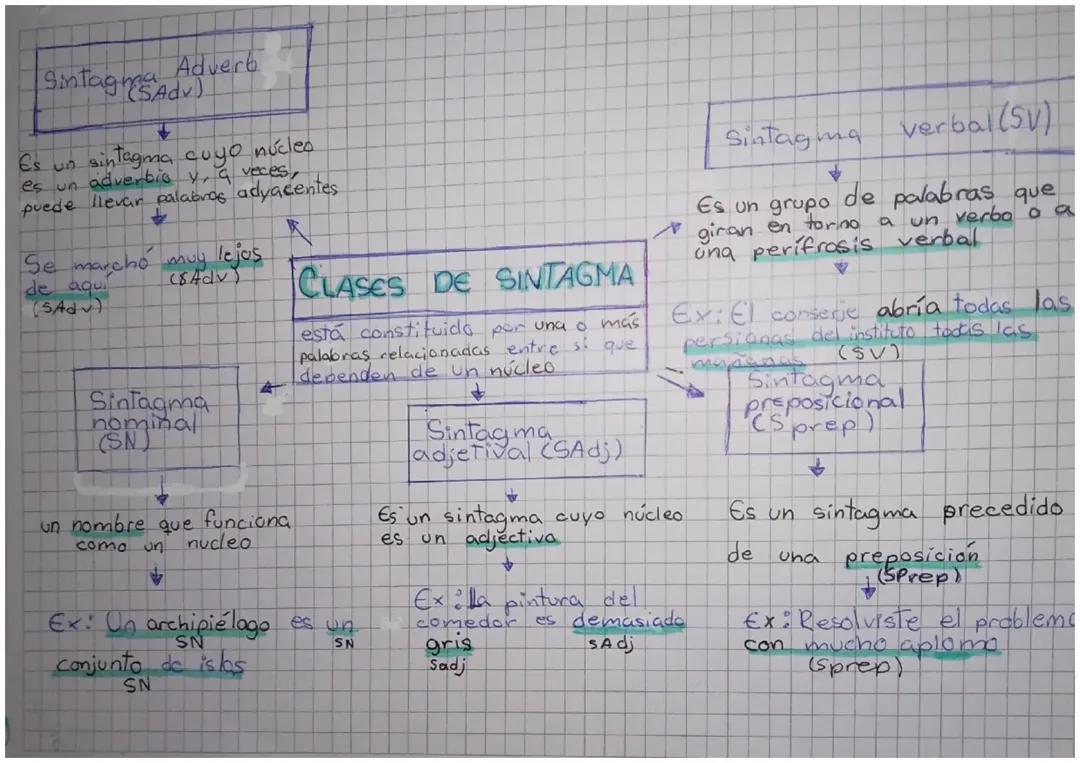 Sintagma Adverb
(SAdv)
Es un sintagma cuyo núcleo
es un adverbio y, a veces,
puede llevar palabras adyacentes
Se marchó muy lejos
(SAdv)
de aquí
(SAdv)
Sintagma verbal (SV)
Es un grupo de palabras que
giran en torno a un verbo o a
una perífrasis verbal
Ex: El conserje abría todas las
persianas del instituto todas las
mañanas (SV)
CLASES DE SINTAGMA
está constituido por una o más
palabras relacionadas entre sí que
dependen de un núcleo
Sintagma
nominal
(SN)
un nombre que funciona
como un nucleo
Ex: Un archipiélago es un
SN SN
conjunto de islas
SN
Sintagma
adjetival (SAdj)
Es un sintagma cuyo núcleo
es un adjectivo
Ex: la pintura del
comedor es demasiado
SAdj
gris
Sadj
Sintagma
preposicional
(S prep)
Es un sintagma precedido
de una preposición
(SPrep)
Ex: Resolviste el problema
con mucho aplomo
(Sprep)